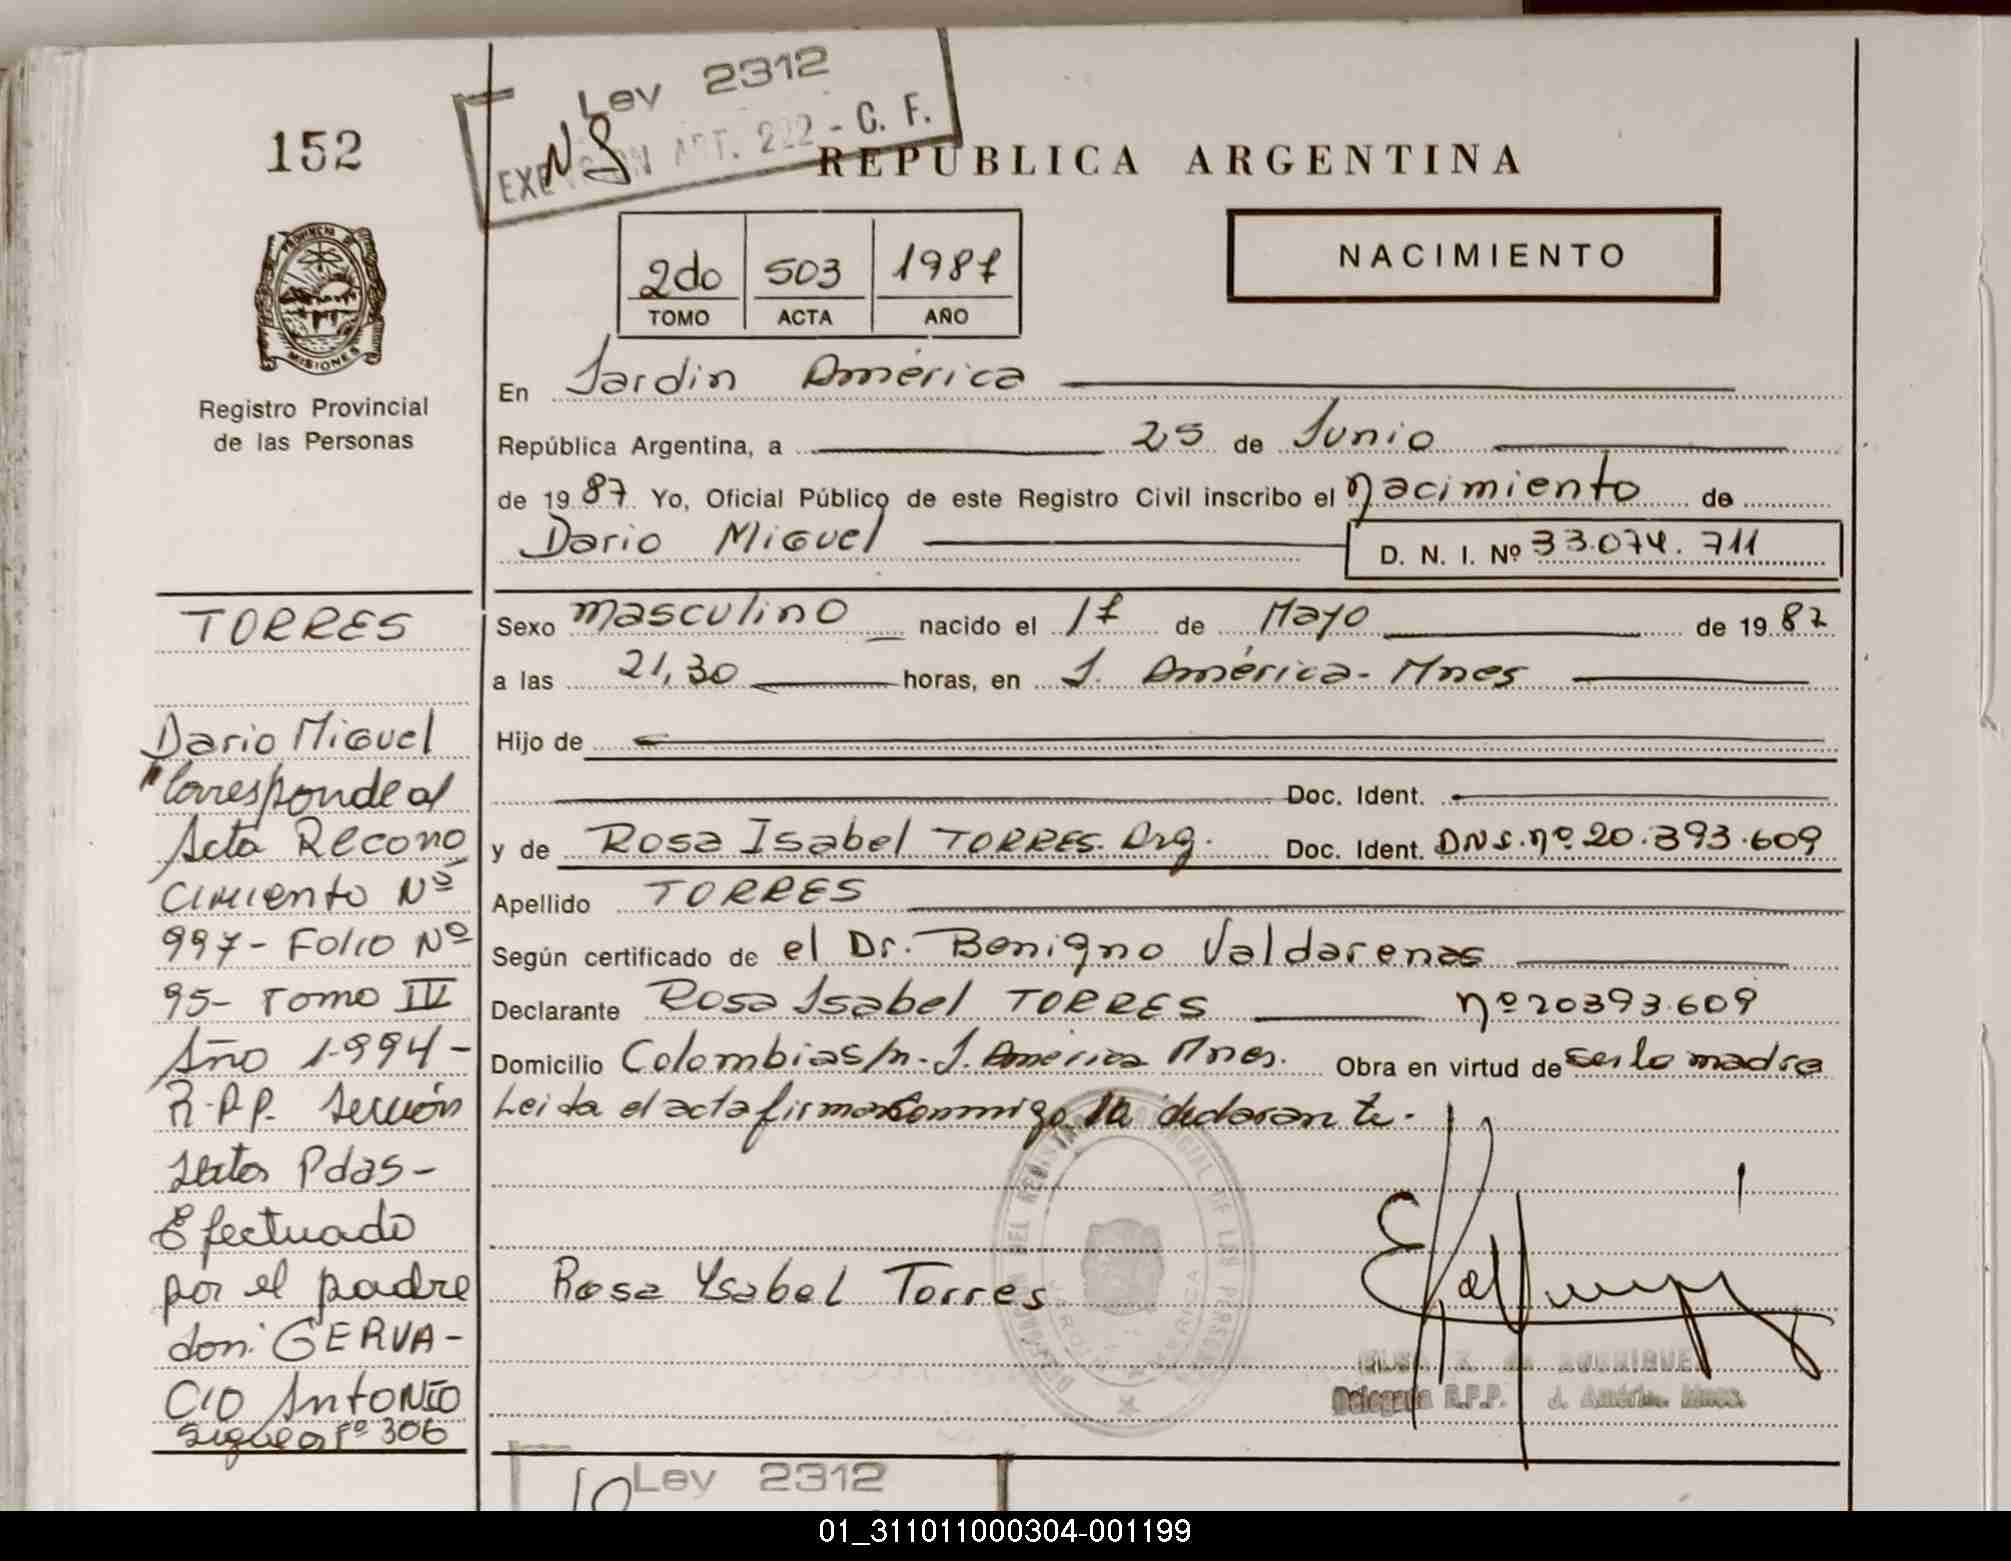 Ley 2312
EXENCION ART. 222 - C. F.
152
REPUBLICA ARGENTINA
PROVINCIA DE
MISIONES
2do 503 1987
TOMO ACTA AÑO
NACIMIENTO
Registro Provincial
de las Personas
En Jardin América
República Argentina, a 25 de Junio
de 1987 Yo, Oficial Público de este Registro Civil inscribo el nacimiento de
Dario Miguel D. N. I. Nº 33.074.711
Sexo masculino nacido el 17 de Mayo de 1987
a las 21,30 horas, en J. América - Mnes
Hijo de
Doc. Ident.
y de Rosa Isabel TORRES. Arg. Doc. Ident. DNI. nº 20.393.609
Apellido TORRES
Según certificado de el Dr. Benigno Valdarenas
Declarante Rosa Isabel TORRES nº 20393.609
Domicilio Colombia s/n. J. América Mnes. Obra en virtud de ser la madre
Leida el acta firma conmigo la declarante.
Rosa Ysabel Torres
Delegada R.P.P. J. América Mnes.
TORRES
Dario Miguel
"Corresponde al
Acta Recono
cimiento Nº
997 - Folio Nº
95 - Tomo IV
Año 1.994 -
R.P.P. Sección
Pdas -
Efectuado
por el padre
don: GERVA-
CIO ANTONIO
Sigue al Fº 306
Ley 2312
01_311011000304-001199